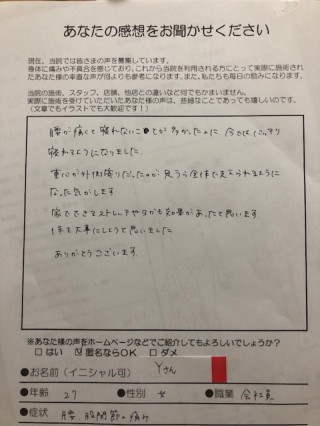 あなたの感想をお聞かせください
現在、当院では皆さまの声を募集しています。
身体に痛みや不具合を感じており、これから当院を利用される方にとって実際に施術され
たあなた様の率直な声が何よりも参考になります。また、私たちも毎日の励みになります。
当院の施術、スタッフ、店舗、他店との違いなど何でもかまいません。
実際に施術を受けていただいたあなた様の声は、些細なことであっても嬉しいのです。
(文章でもイラストでも大歓迎です!)
腰が痛くて寝れないことが多かったのに 今ではぐっすり
寝れるようになりました。
重心が外側寄りだったのが 足うら全体で支えられるように
なった気がします
家でできるストレッチやヨガも効果があったと思います
体を大事にしようと思いました
ありがとうございます
※あなた様の声をホームページなどでご紹介してもよろしいでしょうか?
□はい ☑匿名ならOK □ダメ
●お名前(イニシャル可) Yさん
●年齢 27 ●性別 女 ●職業 会社員
●症状 腰、股関節の痛み